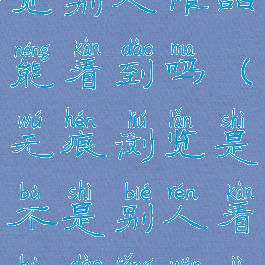 见别人作品
néng kàn dào ma
能看到吗（
wú hén liú lǎn shì
无痕浏览是
bú shì bié rén kàn
不是别人看